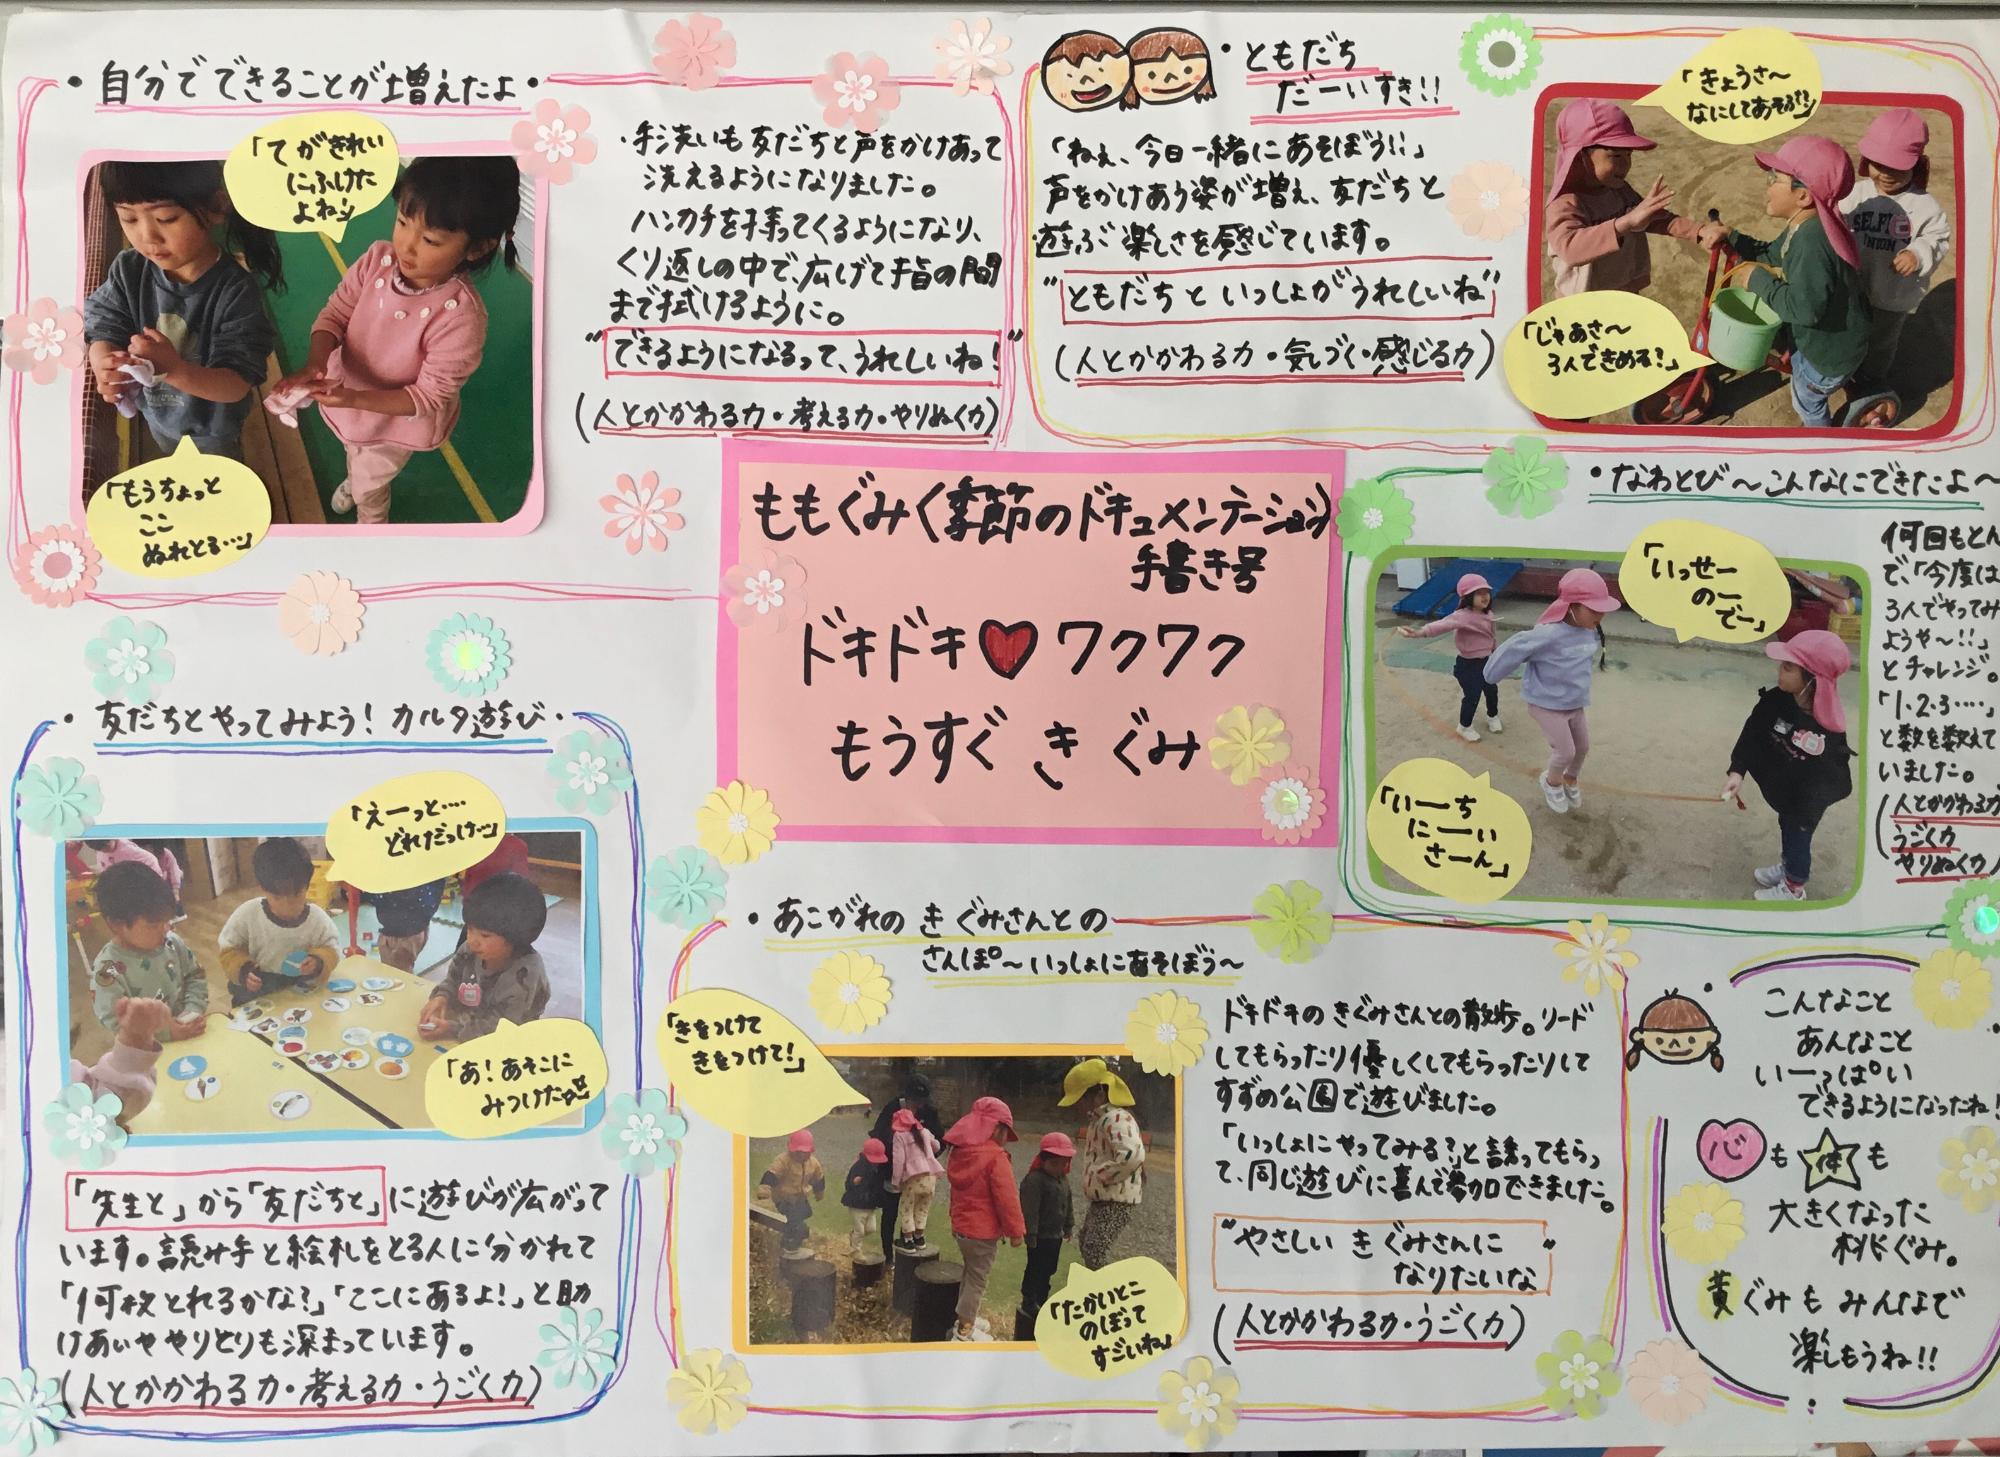 ・自分でできることが増えたよ・
「てがきれい
にふけた
よね」
「もうちょっと
ここ
ぬれとる…」
・手洗いも友だちと声をかけあって
洗えるようになりました。
ハンカチを持ってくるようになり、
くり返しの中で、広げて指の間
まで拭けるように。
"できるようになるって、うれしいね!"
(人とかかわる力・考える力・やりぬく力)
・ともだち
だーいすき!!
「ねぇ、今日一緒にあそぼう!!」
声をかけあう姿が増え、友だちと
遊ぶ楽しさを感じています。
"ともだちといっしょがうれしいね"
(人とかかわる力・気づく・感じる力)
「きょうさ〜
なにしてあそぶ?」
「じゃあさ〜
3人できめる?」
SELF
UNION
ももぐみ〈季節のドキュメンテーション〉
手書き号
ドキドキ♥ワクワク
もうすぐ きぐみ
・なわとび〜こんなにできたよ〜
「いっせー
のー
でー」
「いーち
にーい
さーん」
何回もとん
で、「今度は
3人でやってみ
ようや〜!!」
とチャレンジ。
「1・2・3……」
と数を数えて
いました。
(人とかかわる力
うごく力
やりぬく力)
・友だちとやってみよう! カルタ遊び・
「えーっと‥‥
どれだっけ…」
「あ!あそこに
みつけた」
「先生と」から「友だちと」に遊びが広がって
います。読み手と絵札をとる人に分かれて
「何枚とれるかな?」「ここにあるよ!」と助
けあいややりとりも深まっています。
(人とかかわる力・考える力・うごく力)
・あこがれの きぐみさんとの
さんぽ〜いっしょにあそぼう〜
「きをつけて
きをつけて!」
「たかいとこ
のぼって
すごいね」
ドキドキのきぐみさんとの散歩。リード
してもらったり優しくしてもらったりして
すずめ公園で遊びました。
「いっしょにやってみる?」と誘ってもらっ
て、同じ遊びに喜んで参加できました。
"やさしい きぐみさんに
なりたいな"
(人とかかわる力・うごく力)
・こんなこと
あんなこと
いーっぱい
できるようになったね!
心も体も
大きくなった
桃ぐみ。
黄ぐみもみんなで
楽しもうね!!